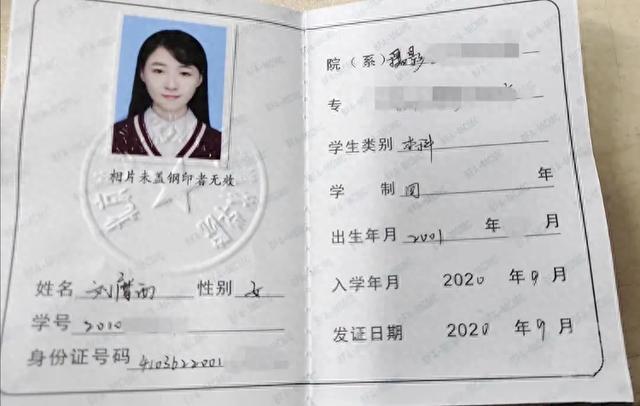 相片未盖钢印者无效
姓名 刘 雨 性别 女
学号 2010
身份证号码 4103622001
院（系）摄影
专
学生类别 本科
学 制 四 年
出生年月 2001 年 月
入学年月 2020 年 9 月
发证日期 2020 年 9 月